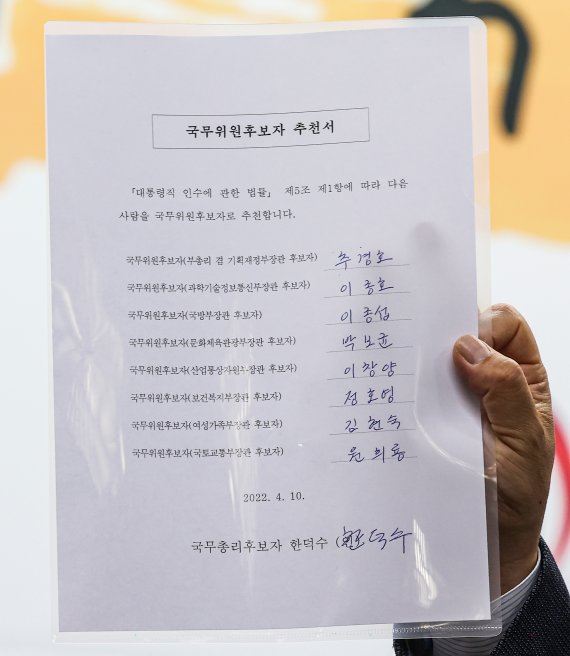 국무위원후보자 추천서
「대통령직 인수에 관한 법률」 제5조 제1항에 따라 다음
사람을 국무위원후보자로 추천합니다.
국무위원후보자(부총리 겸 기획재정부장관 후보자) 추경호
국무위원후보자(과학기술정보통신부장관 후보자) 이종호
국무위원후보자(국방부장관 후보자) 이종섭
국무위원후보자(문화체육관광부장관 후보자) 박보균
국무위원후보자(산업통상자원부장관 후보자) 이창양
국무위원후보자(보건복지부장관 후보자) 정호영
국무위원후보자(여성가족부장관 후보자) 김현숙
국무위원후보자(국토교통부장관 후보자) 원희룡
2022. 4. 10.
국무총리후보자 한덕수 (한덕수